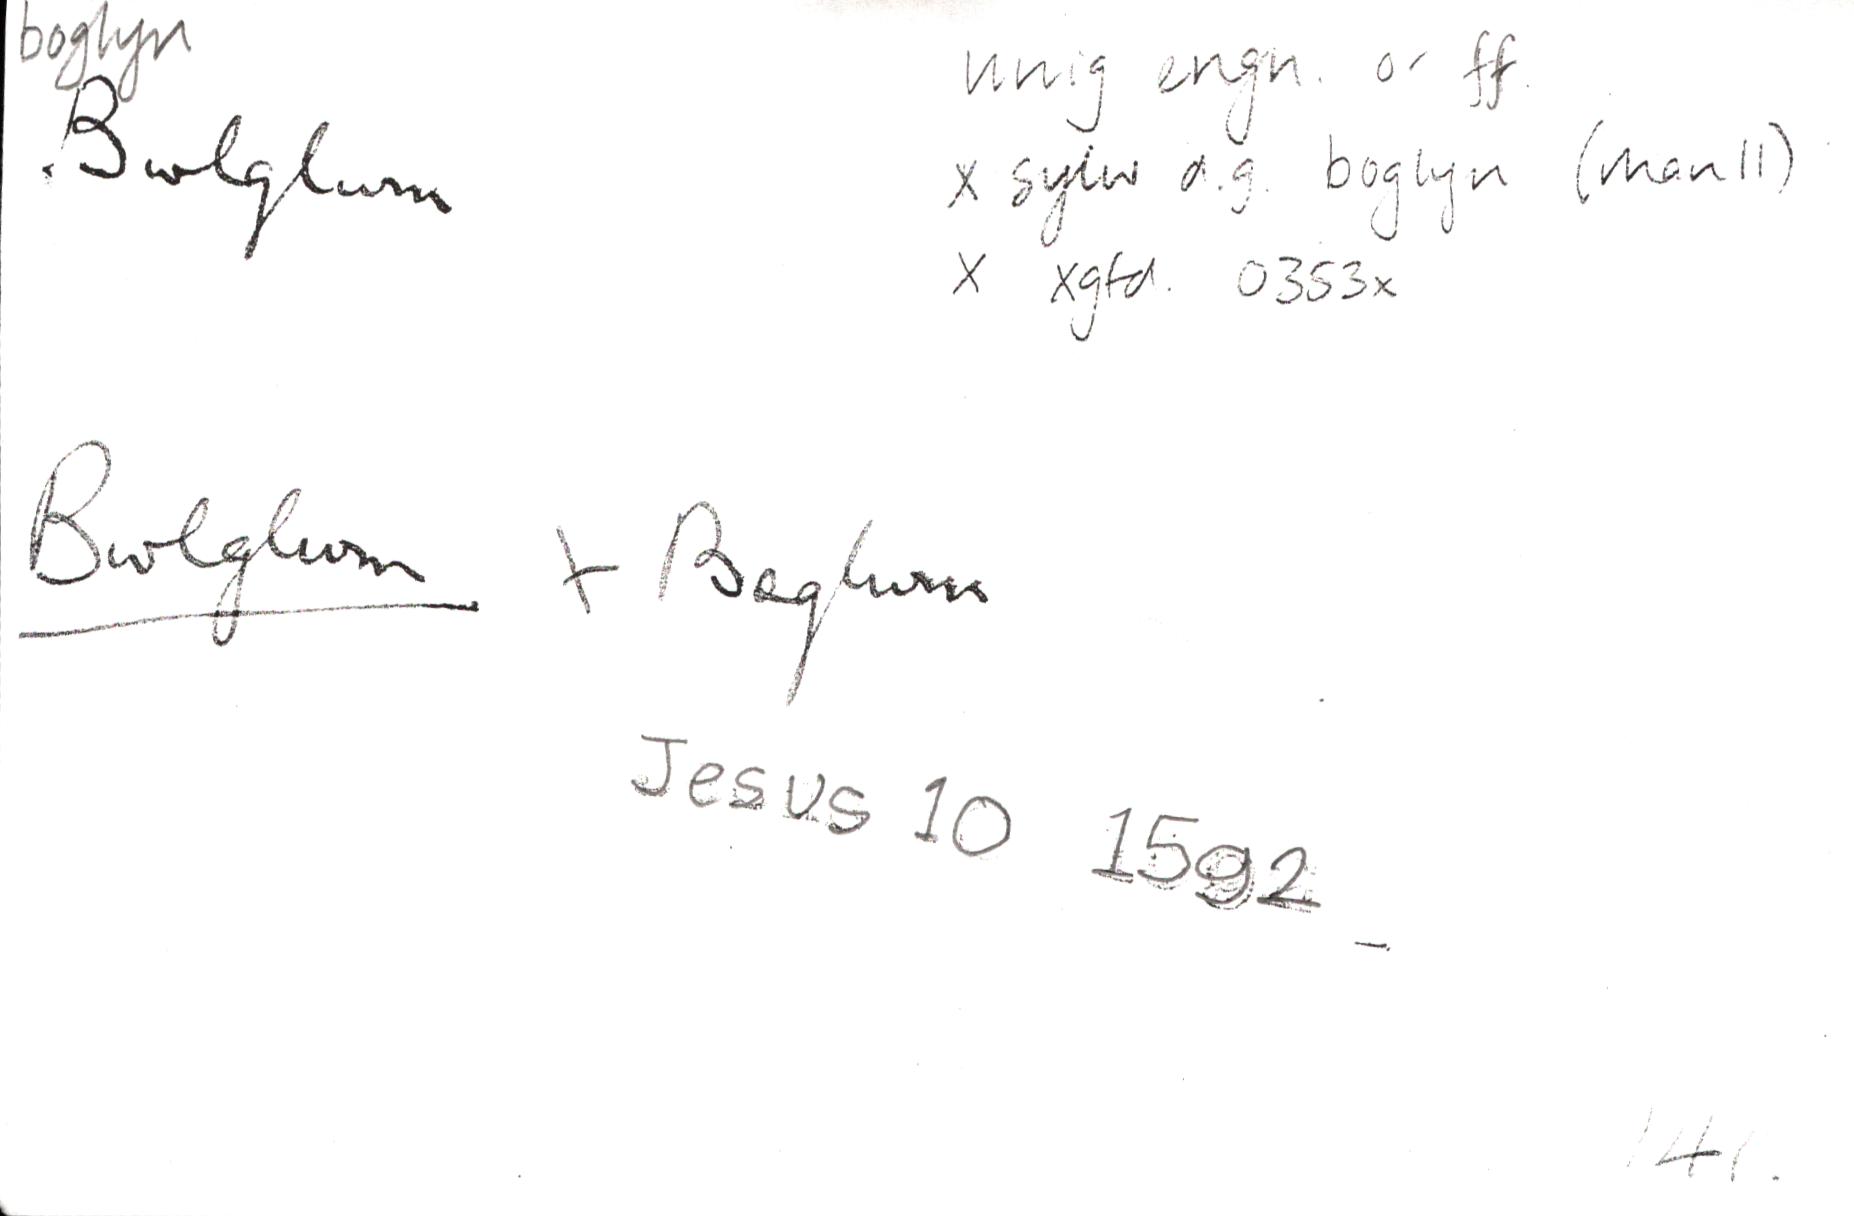 boglyn
Bwlglwm
unig engh. o'r ff.
x sylw d.g. boglyn (man 11)
x xgfd. 0353x
Bwlglwm + Boglwm
Jesus 10 1592
141.